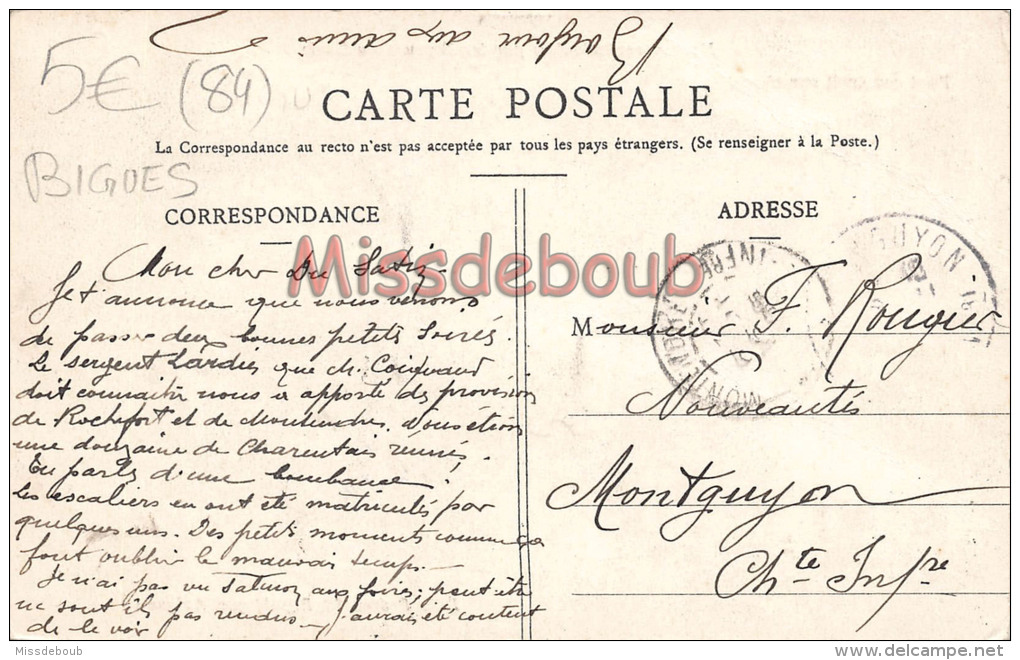 Bonjour aux amis
5€ (84)
CARTE POSTALE
La Correspondance au recto n'est pas acceptée par tous les pays étrangers. (Se renseigner à la Poste.)
BIGUES
CORRESPONDANCE
Mon cher Du
Je t'annonce que nous venons
de passer deux bonnes petites soirées.
Le sergent Lardin que ch.
doit connaitre nous a apporté des provisions
de Rochefort et de Montendre. Nous étions
une douzaine de Charentais réunis,
En parts d'une bombance.
Les escaliers en ont été matriculés par
quelques uns. Des petits moments comme ça
font oublier le mauvais temps.
Je n'ai pas vu aux foires; peut être
ne sont ils pas rendus. J'aurais été content
de le voir
ADRESSE
GUYON
MONTENDRE
INFRE
Monsieur F. Rougier
Nouveautés
Montguyon
Chte Infre
Missdeboub
Missdeboub
www.delcampe.net